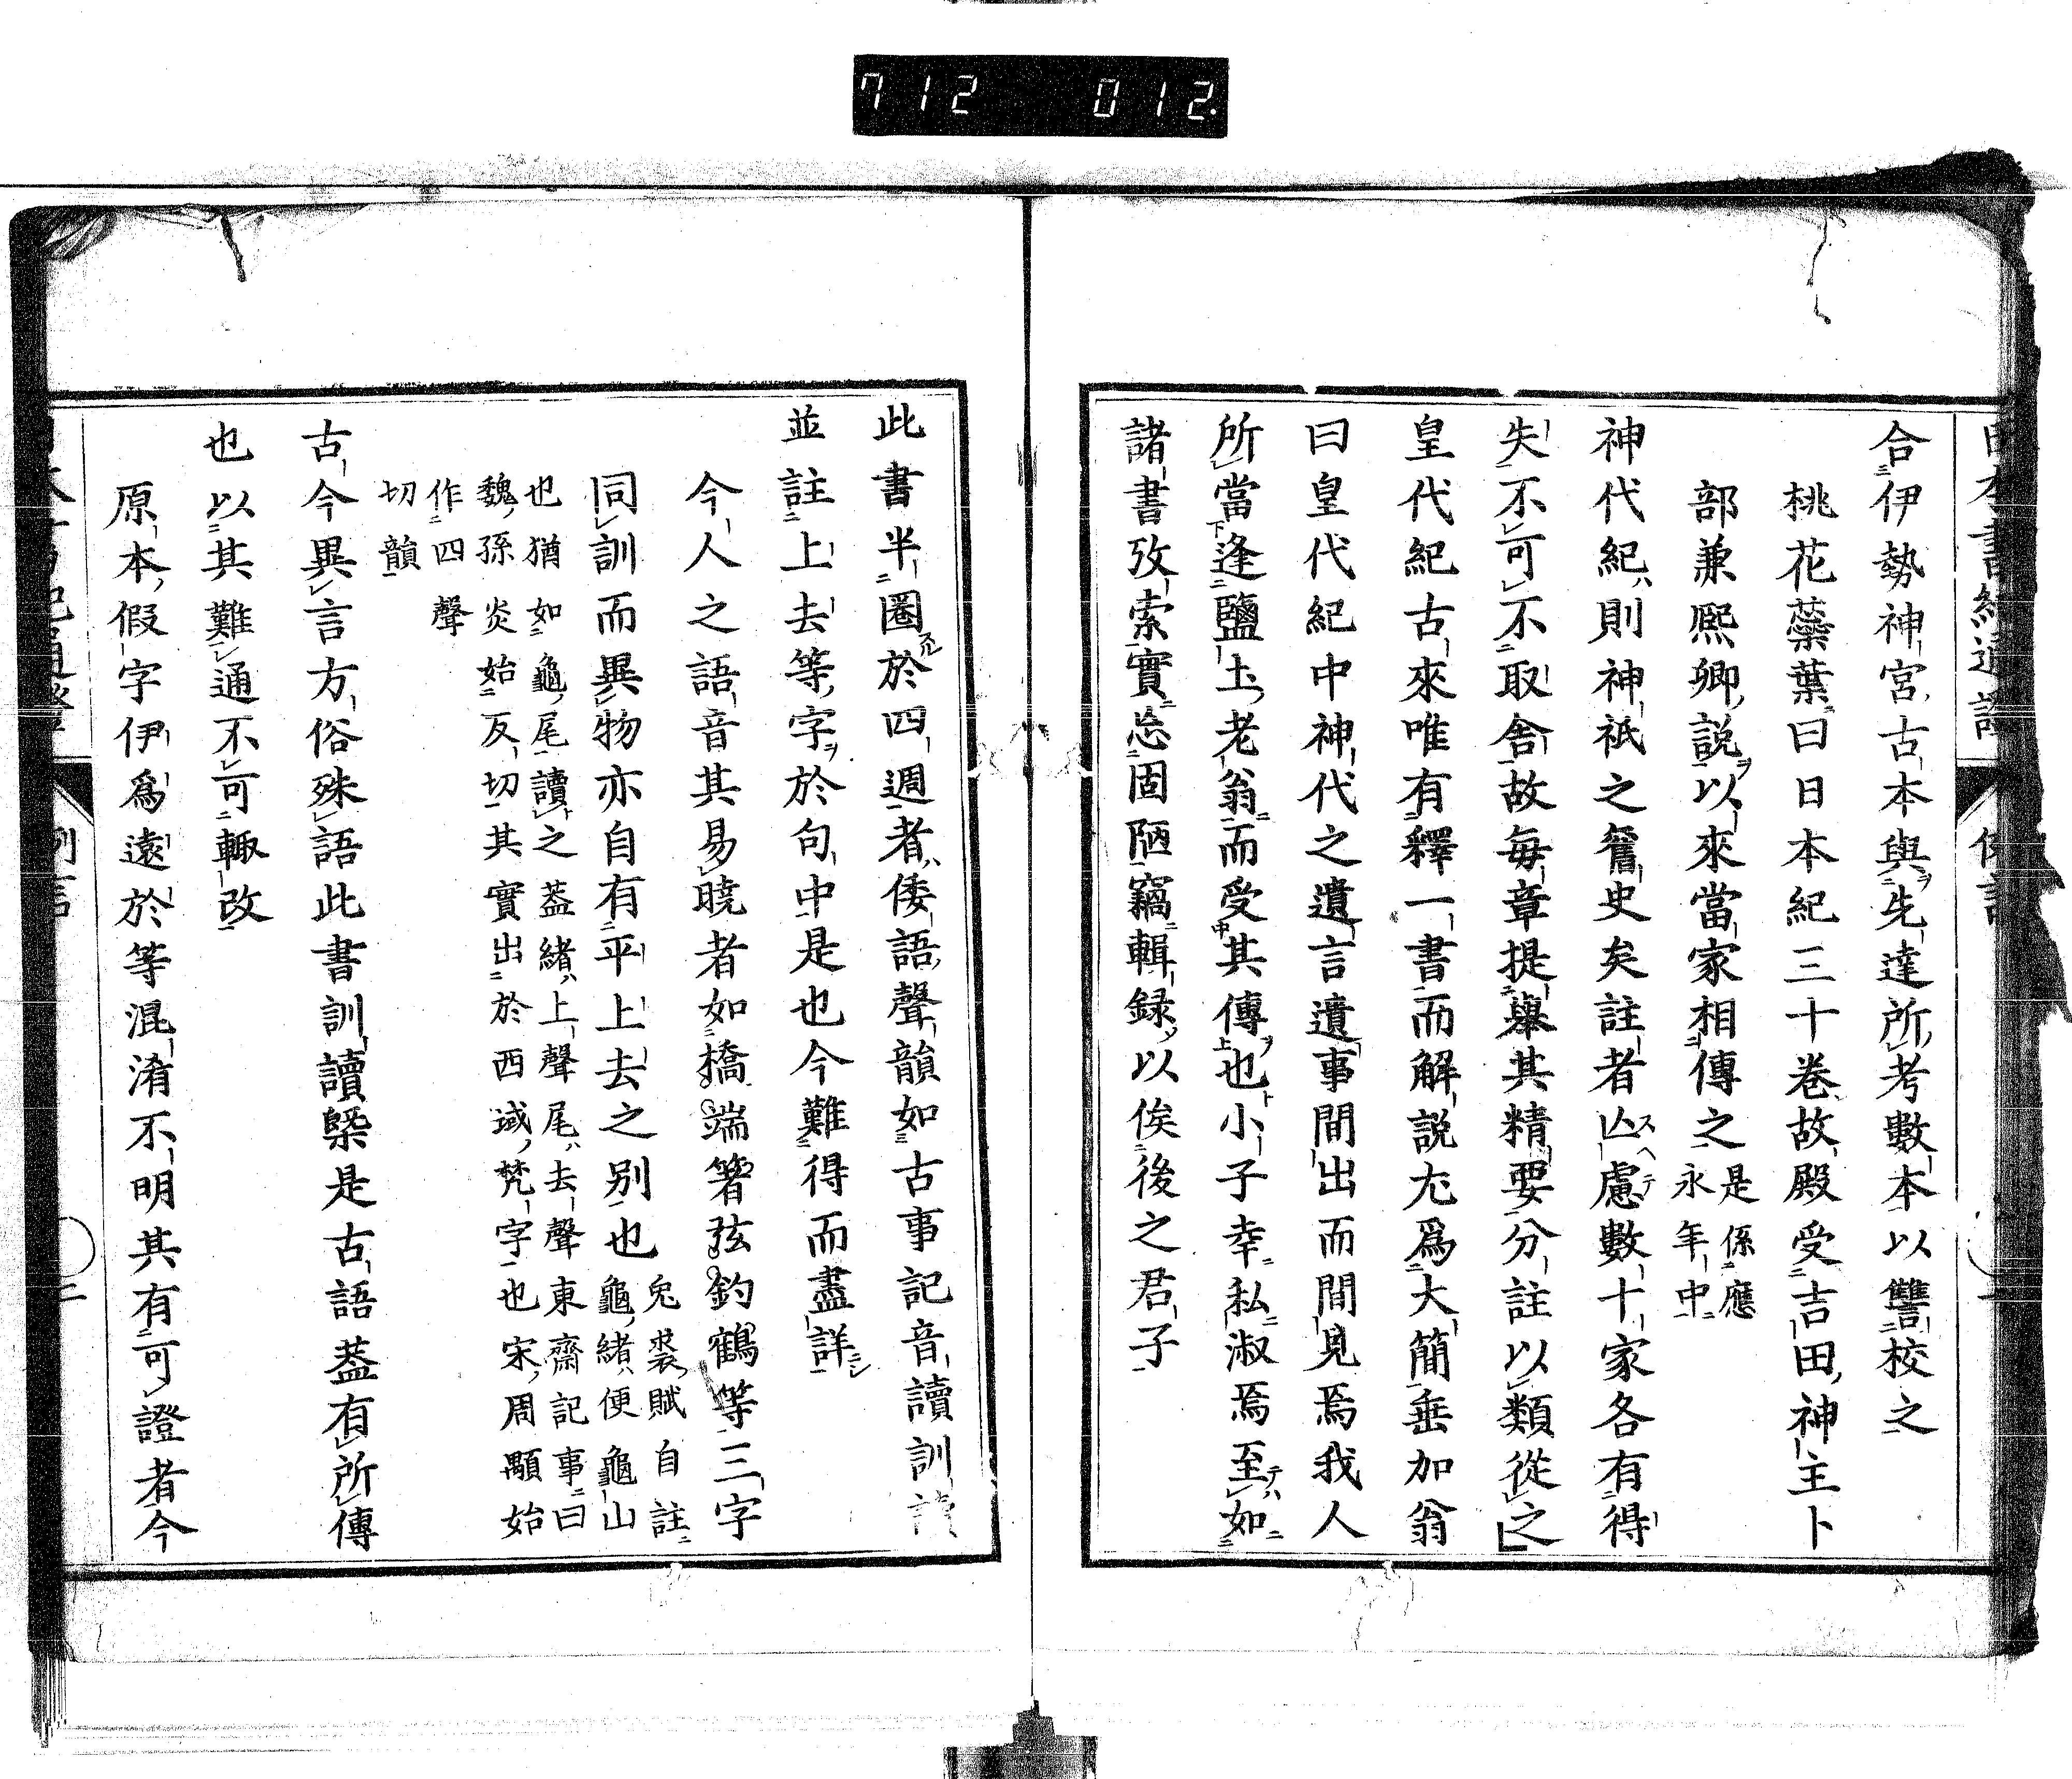 712 012.
合伊勢神宮古本與先達所考數本以讐校之
桃花蘂葉曰日本紀三十卷故殿受吉田神主卜
部兼熈卿說以來當家相傳之是係應永年中
神代紀則神祇之舊史矣註者亾慮數十家各有得
失不可不取舍故每章提擧其精要分註以類從之
皇代紀古來唯有釋一書而解說尢爲大簡垂加翁
曰皇代紀中神代之遺言遺事間出而間見焉我人
所當逢鹽土老翁而受其傳也小子幸私淑焉至如
諸書攷索實忘固陋竊輯録以俟後之君子
此書半圏於四週者倭語聲韻如古事記音讀訓讀
並註上去等字於句中是也今難得而盡詳
今人之語音其易曉者如橋端箸弦釣鶴等三字
同訓而異物亦自有平上去之別也兔裘賦自註龜緖便龜山
也猶如龜尾讀之葢緖上聲尾去聲東齋記事曰
魏孫炎始反切其實出於西域梵字也宋周顒始
作四聲
切韻
古今異言方俗殊語此書訓讀槩是古語葢有所傳
也以其難通不可輙改
原本假字伊爲遠於等混淆不明其有可證者今